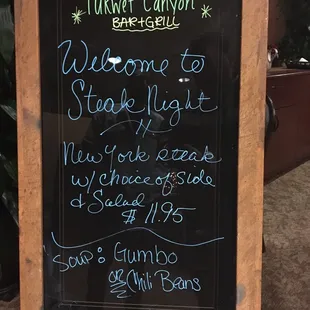 Tukwet Canyon
BAR + GRILL
Welcome to
Steak Night
New York steak
w/ choice of side
& Salad
$11.95
Soup: Gumbo
or Chili Beans